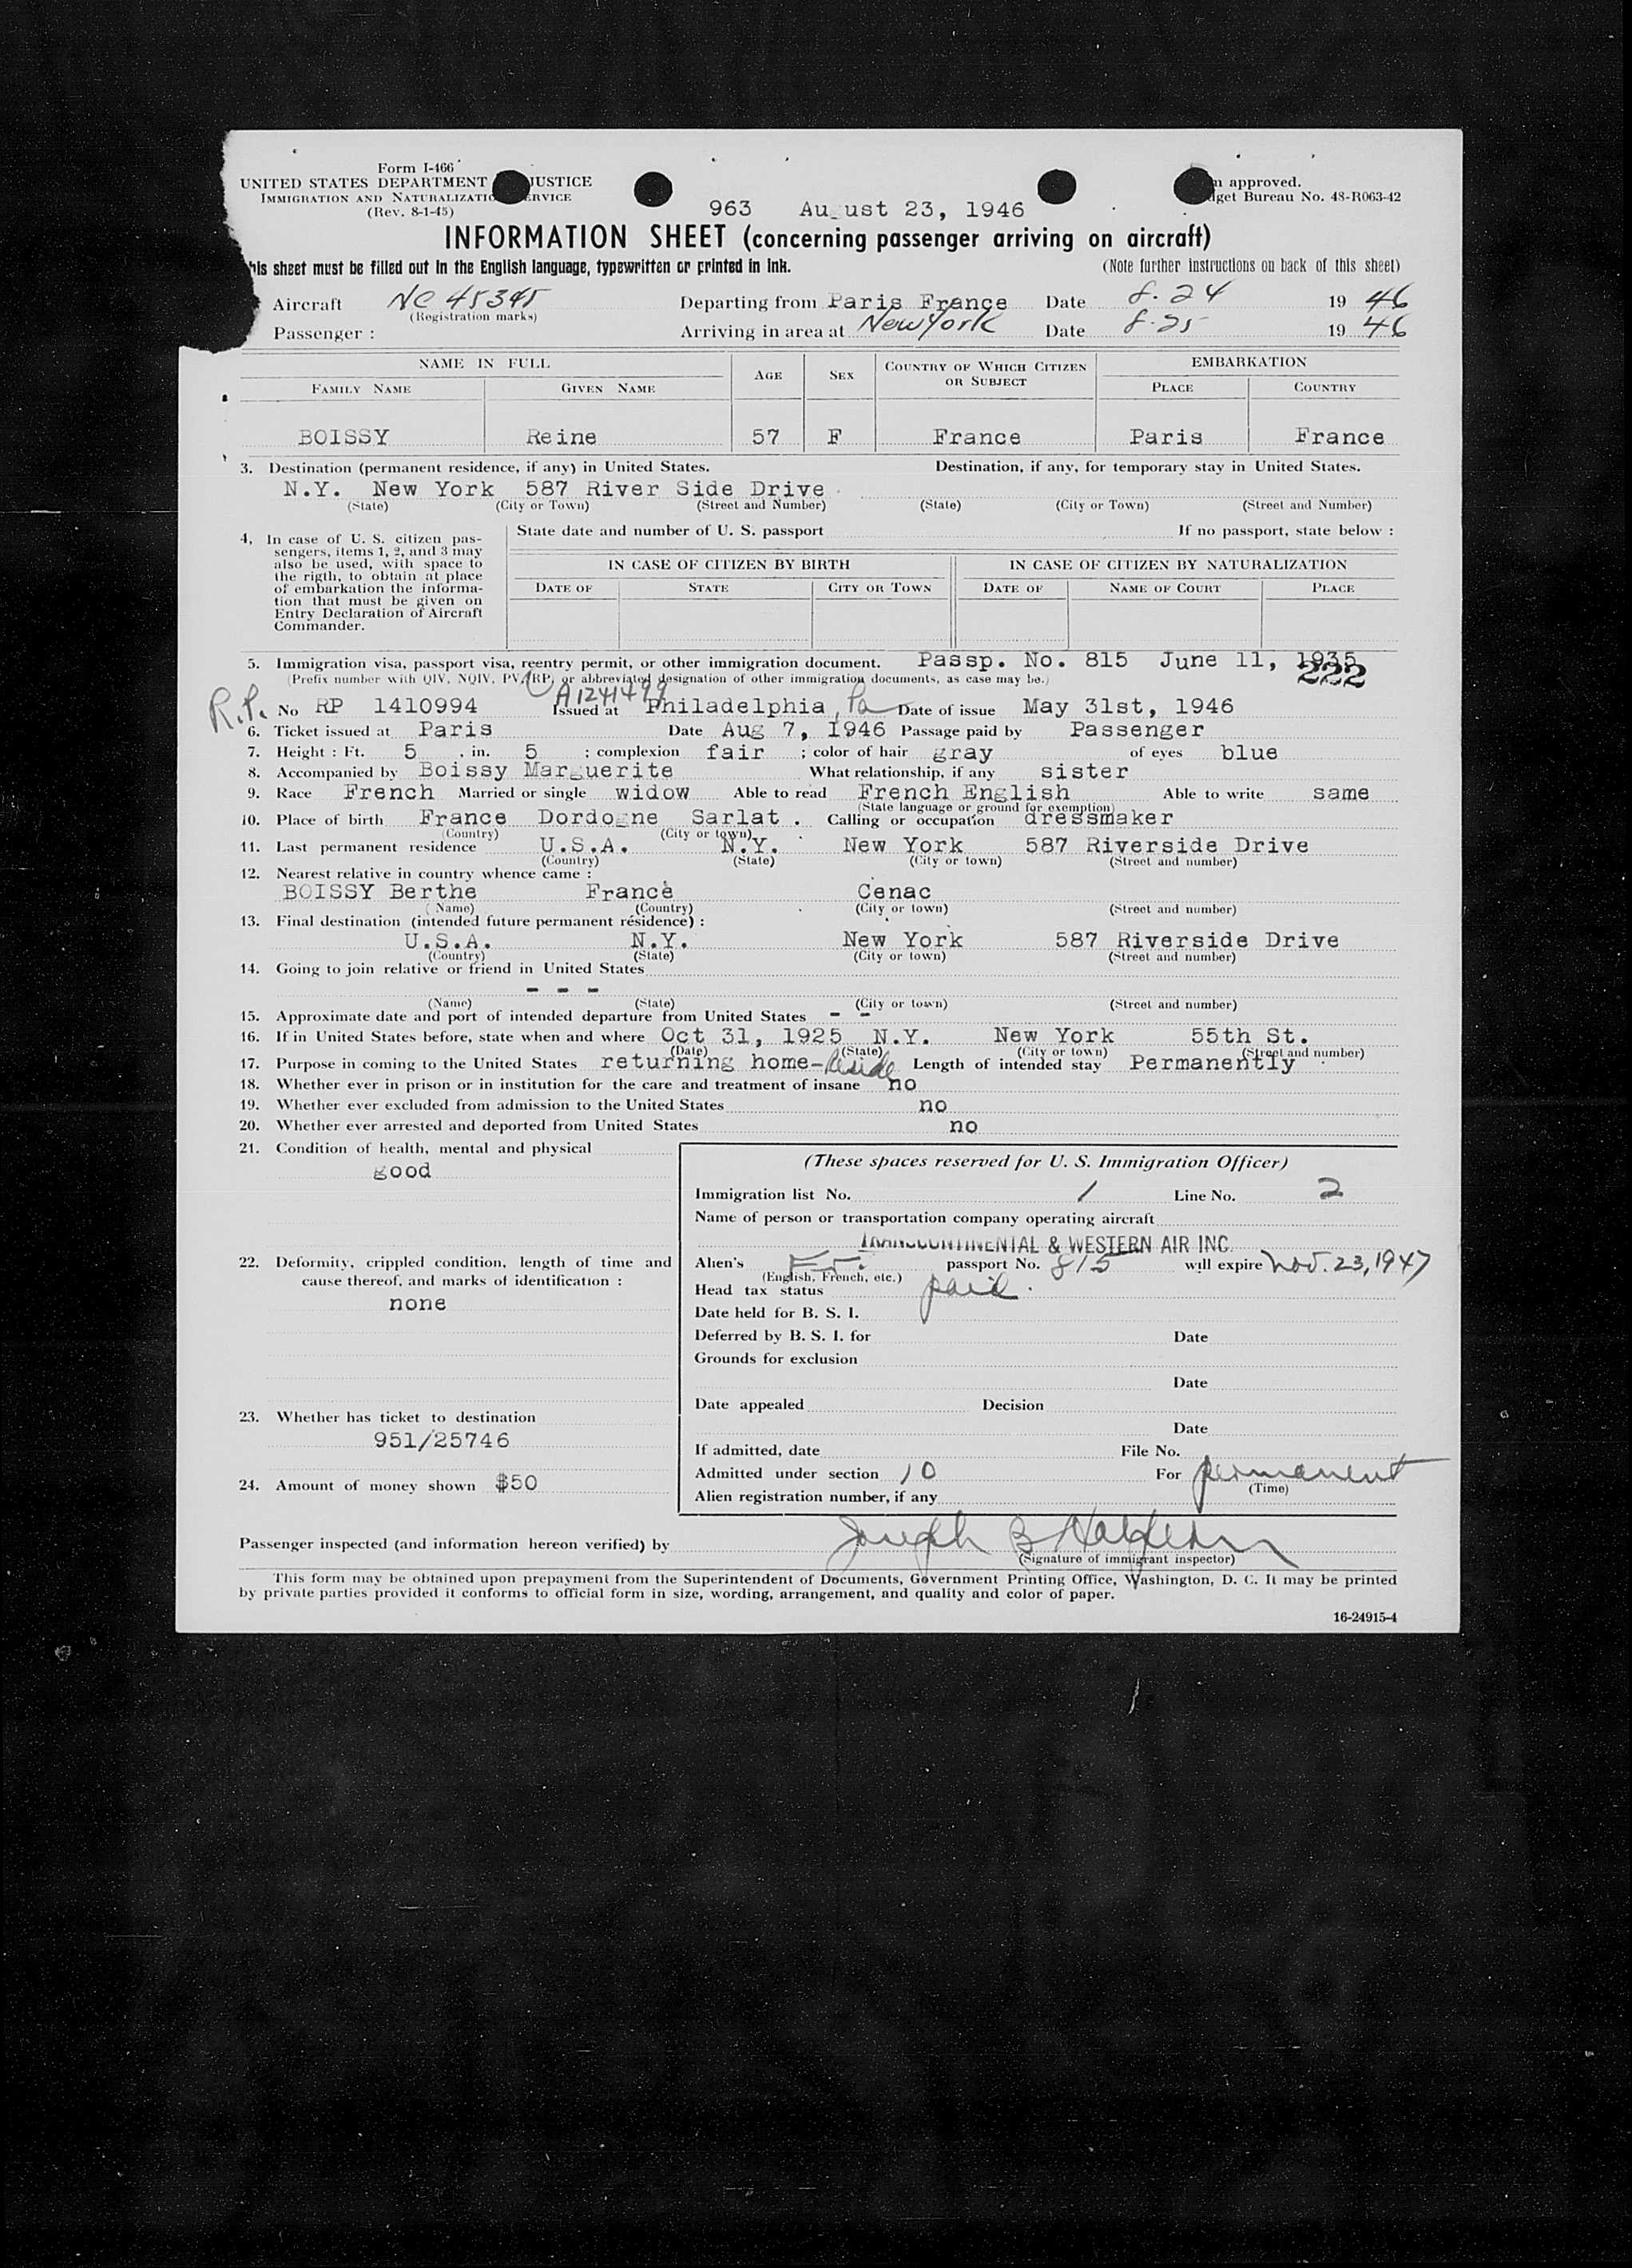 Form I-466
UNITED STATES DEPARTMENT JUSTICE
IMMIGRATION AND NATURALIZATIO ERVICE
(Rev. 8-1-45)
n approved.
dget Bureau No. 48-R063-42
963 Au ust 23, 1946
INFORMATION SHEET (concerning passenger arriving on aircraft)
his sheet must be filled out in the English language, typewritten or printed in ink. (Note further instructions on back of this sheet)
Aircraft NC 45345 Departing from Paris France Date 8.24 19 46
(Registration marks)
Passenger : Arriving in area at New York Date 8.25 19 46
NAME IN FULL AGE SEX COUNTRY OF WHICH CITIZEN OR SUBJECT EMBARKATION
FAMILY NAME GIVEN NAME PLACE COUNTRY
BOISSY Reine 57 F France Paris France
3. Destination (permanent residence, if any) in United States. Destination, if any, for temporary stay in United States.
N.Y. New York 587 River Side Drive
(State) (City or Town) (Street and Number) (State) (City or Town) (Street and Number)
4. In case of U. S. citizen pas-
sengers, items 1, 2, and 3 may
also be used, with space to
the rigth, to obtain at place
of embarkation the informa-
tion that must be given on
Entry Declaration of Aircraft
Commander.
State date and number of U. S. passport If no passport, state below :
IN CASE OF CITIZEN BY BIRTH IN CASE OF CITIZEN BY NATURALIZATION
DATE OF STATE CITY OR TOWN DATE OF NAME OF COURT PLACE
5. Immigration visa, passport visa, reentry permit, or other immigration document. Passp. No. 815 June 11, 1935
222
(Prefix number with QIV, NQIV, PV, RP, or abbreviated designation of other immigration documents, as case may be.)
A1241499
R.P. No RP 1410994 Issued at Philadelphia, Pa Date of issue May 31st, 1946
6. Ticket issued at Paris Date Aug 7, 1946 Passage paid by Passenger
7. Height : Ft. 5 . in. 5 ; complexion fair ; color of hair gray of eyes blue
8. Accompanied by Boissy Marguerite What relationship, if any sister
9. Race French Married or single widow Able to read French English Able to write same
(State language or ground for exemption)
10. Place of birth France Dordogne Sarlat . Calling or occupation dressmaker
(Country) (City or town)
11. Last permanent residence U.S.A. N.Y. New York 587 Riverside Drive
(Country) (State) (City or town) (Street and number)
12. Nearest relative in country whence came :
BOISSY Berthe France Cenac
(Name) (Country) (City or town) (Street and number)
13. Final destination (intended future permanent résidence) :
U.S.A. N.Y. New York 587 Riverside Drive
(Country) (State) (City or town) (Street and number)
14. Going to join relative or friend in United States
- - -
(Name) (State) (City or town) (Street and number)
15. Approximate date and port of intended departure from United States - -
16. If in United States before, state when and where Oct 31, 1925 N.Y. New York 55th St.
(Date) (State) (City or town) (Street and number)
17. Purpose in coming to the United States returning home-Reside Length of intended stay Permanently
18. Whether ever in prison or in institution for the care and treatment of insane no
19. Whether ever excluded from admission to the United States no
20. Whether ever arrested and deported from United States no
21. Condition of health, mental and physical
good
22. Deformity, crippled condition, length of time and
cause thereof, and marks of identification :
none
23. Whether has ticket to destination
951/25746
24. Amount of money shown $50
(These spaces reserved for U. S. Immigration Officer)
Immigration list No. 1 Line No. 2
Name of person or transportation company operating aircraft
TRANSCONTINENTAL & WESTERN AIR INC.
Alien's Fr. passport No. 815 will expire Nov. 23, 1947
(English, French, etc.)
Head tax status paid.
Date held for B. S. I.
Deferred by B. S. I. for Date
Grounds for exclusion
Date
Date appealed Decision
Date
If admitted, date File No.
Admitted under section 10 For permanent
(Time)
Alien registration number, if any
Passenger inspected (and information hereon verified) by Joseph B Halpern
(Signature of immigrant inspector)
This form may be obtained upon prepayment from the Superintendent of Documents, Government Printing Office, Washington, D. C. It may be printed
by private parties provided it conforms to official form in size, wording, arrangement, and quality and color of paper.
16-24915-4